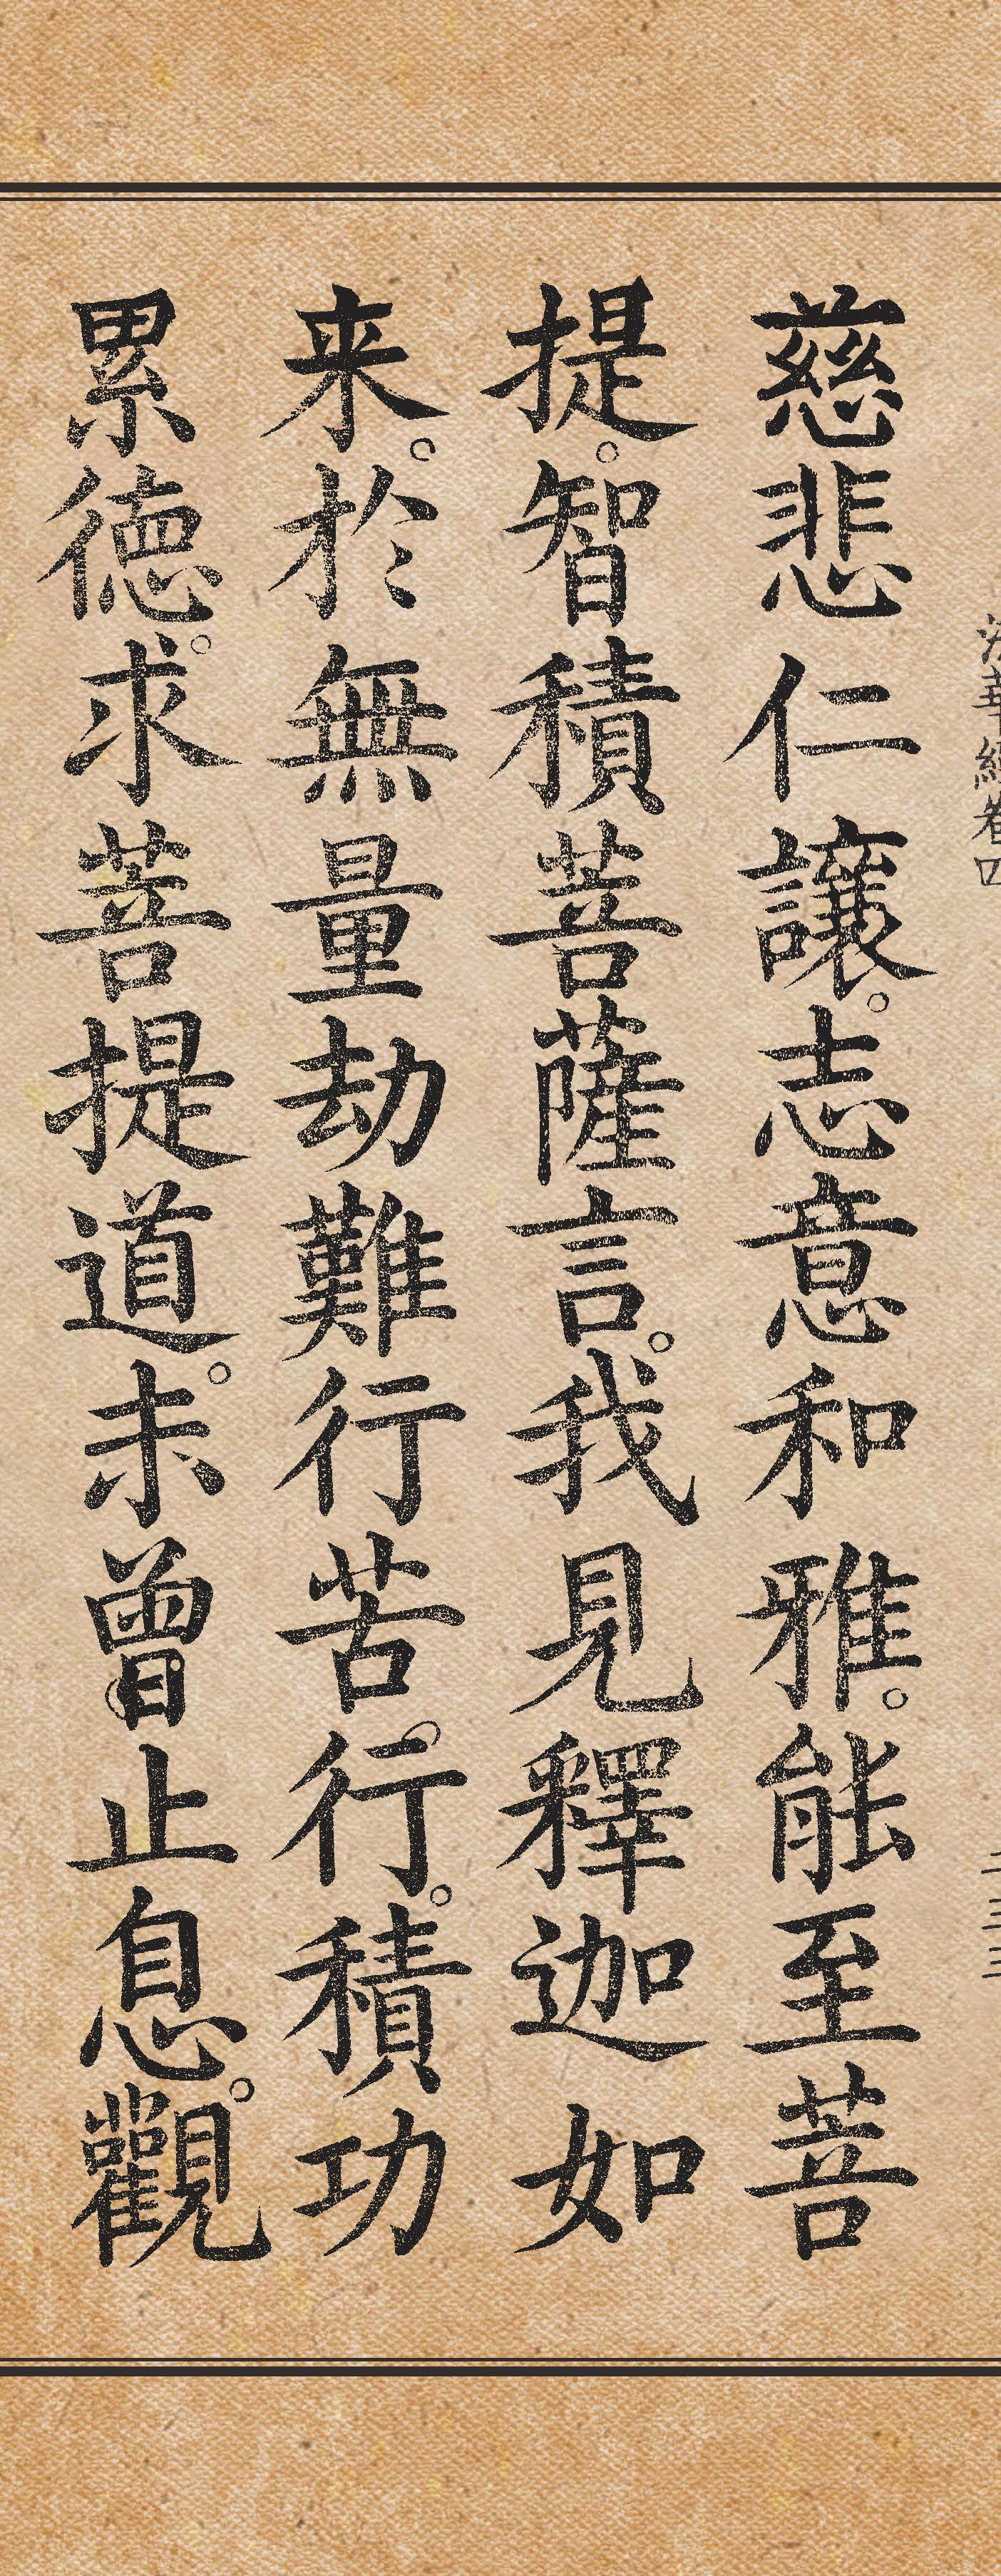 法華經卷四
二三三
慈悲仁讓。志意和雅。能至菩
提。智積菩薩言。我見釋迦如
来。於無量劫難行苦行。積功
累德。求菩提道。未曾止息。觀